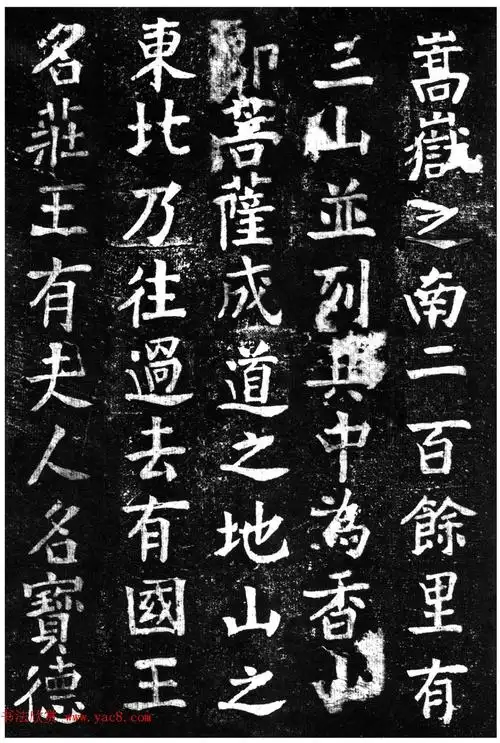 嵩嶽之南二百餘里有
三山並列其中為香山
即菩薩成道之地山之
東北乃往過去有國王
名莊王有夫人名寶德
书法欣赏 www.yac8.com